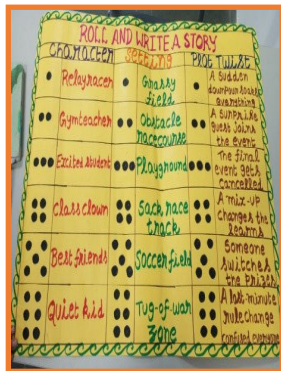 ROLL AND WRITE A STORY
Character Setting Plot Twist
Relayracer
Grassy
field
A sudden
downpour soaks
everything
Gymteacher
Obstacle
racecourse
A surprise
guest joins
the event
Excited student
Playground
The final
event gets
cancelled
Class clown
Sack race
track
A mix-up
changes the
teams
Best friends
Soccer field
Someone
switches
the prizes
Quiet kid
Tug-of-war
zone
A last-minute
rule change
confused everyone